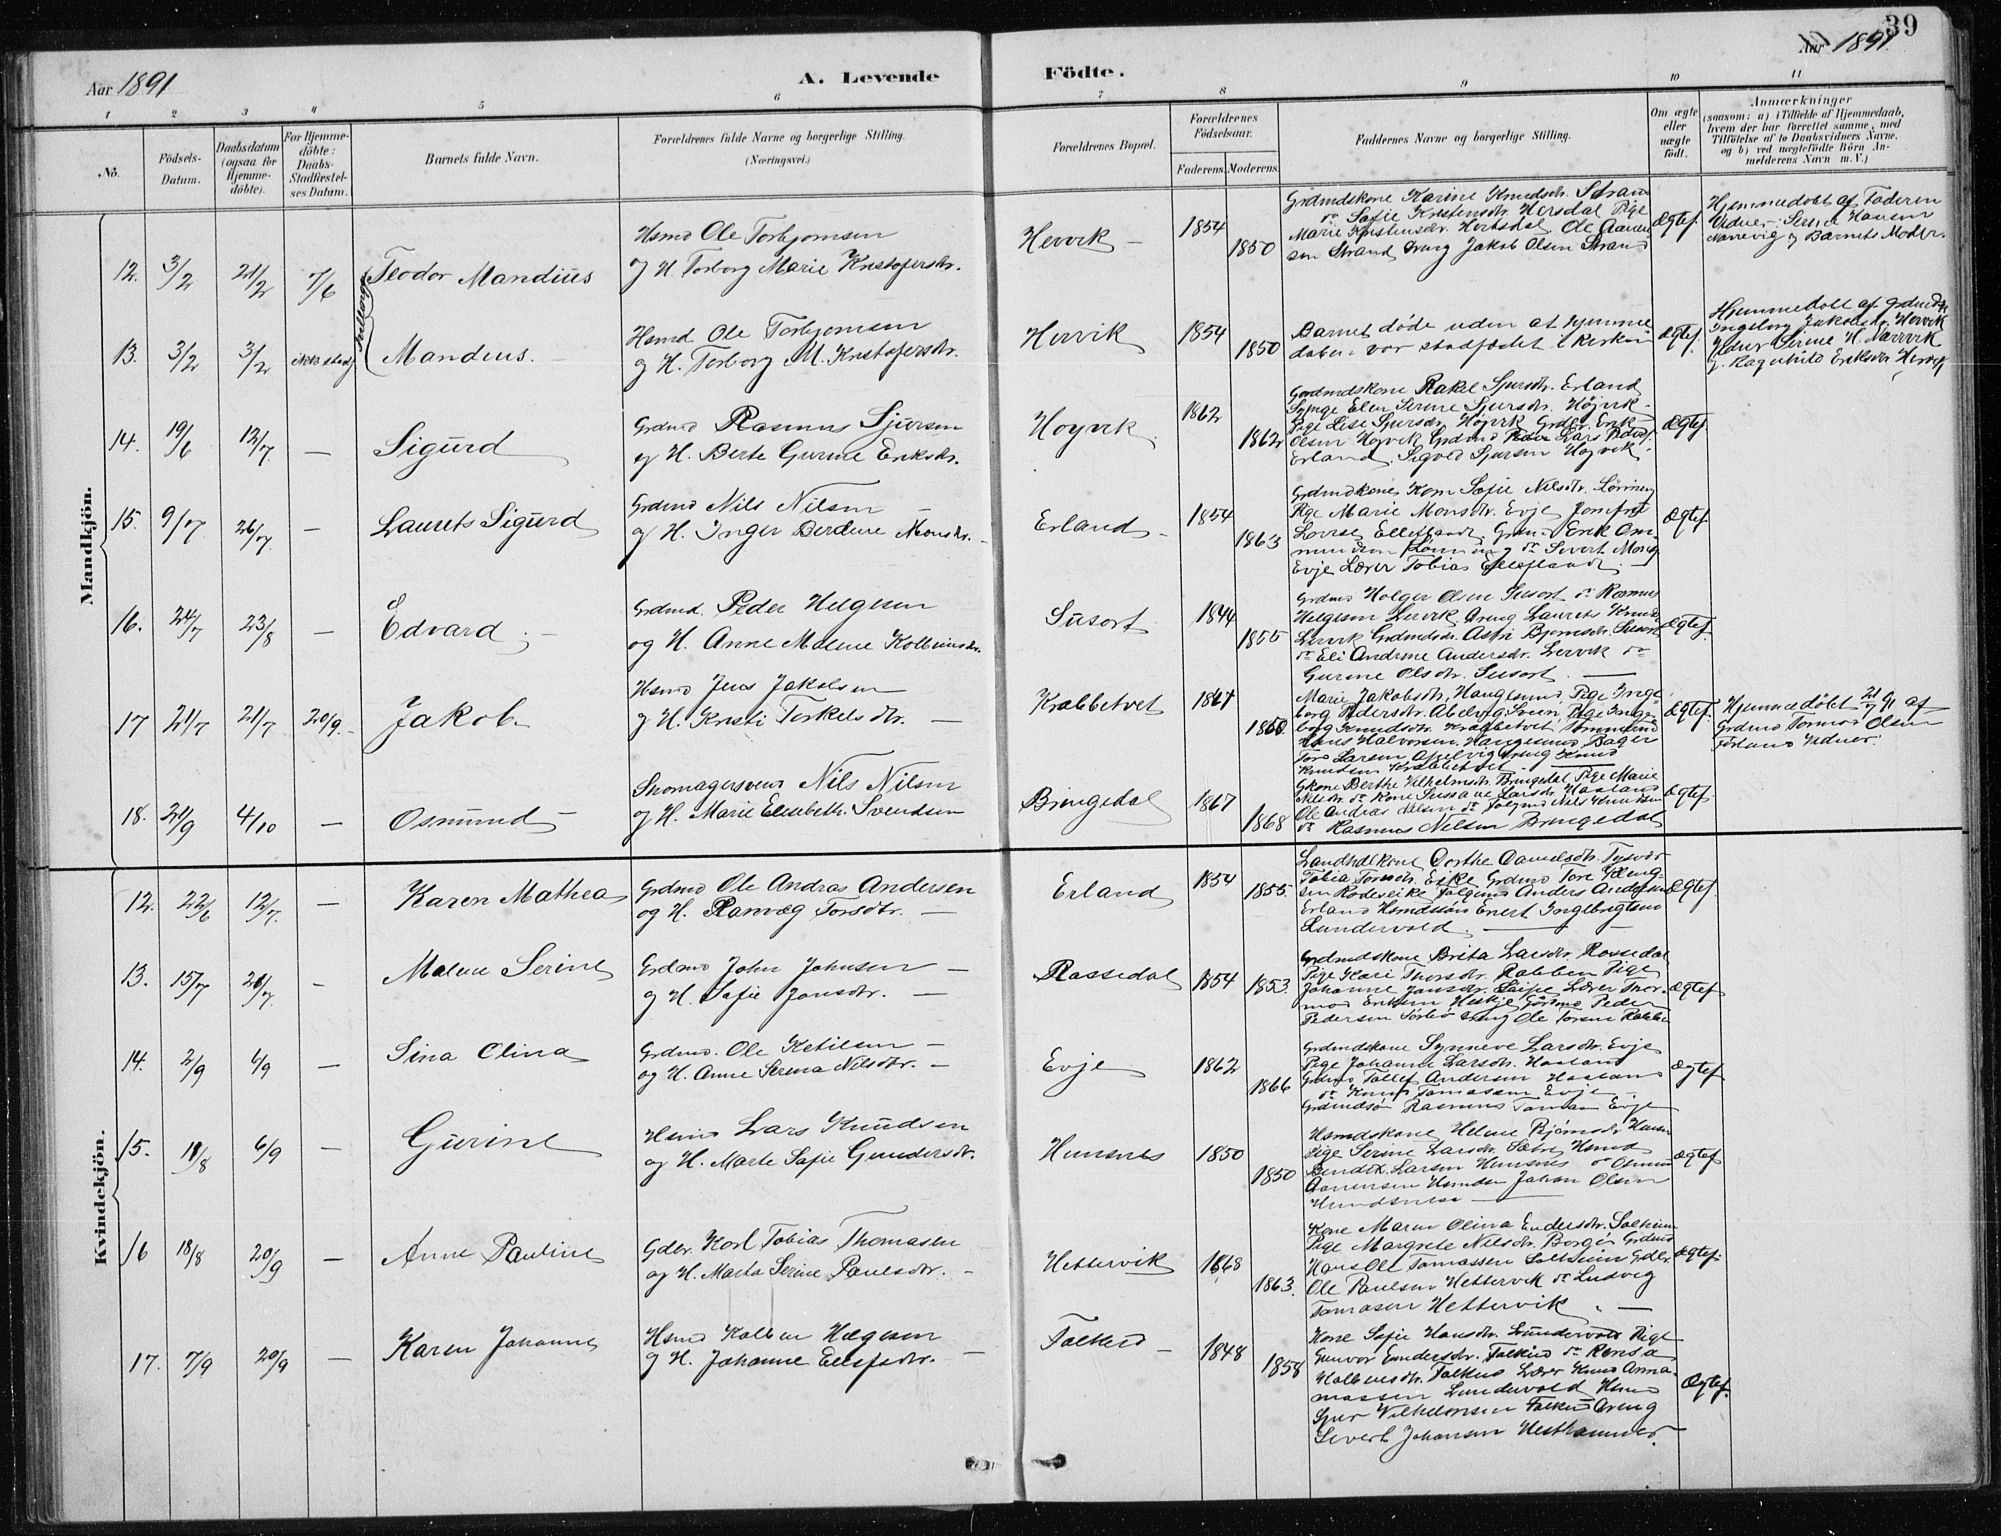 39
Aar 1891
A. Levende
Födte.
Aar 1891
1 2 3 4 5 6 7 8 9 10 11
No.
Födsels-Datum.
Daabsdatum (ogsaa for Hjemme-döbte).
For Hjemme-döbte: Daabs-Stadfæstel-ses Datum.
Barnets fulde Navn.
Forældrenes fulde Navne og borgerlige Stilling.
(Næringsvei.)
Forældrenes Bopæl.
Forældrenes Födselsaar.
Faderens. Moderens.
Faddernes Navne og borgerlige Stilling.
Om ægte eller uægte födt.
Anmærkninger
(saasom: a) i Tilfælde af Hjemmedaab, hvem der har forrettet samme, med Tilföielse af to Daabsvidners Navne. og b) ved uægtefödte Börn An-melderens Navn m. V.)
Mandkjön.
12. 3/2 21/2 7/6 Teodor Mandius
Hsmd Ole Torbjornsen
og H. Torborg Marie Kristofersdr.
Hervik 1854 1850
Grdmdskone Karine Knudsdr. Strand
do Sofie Kristensdr. Hersdal Pige
Marie Kristensdr. Hertsdal Ole Aanen
sen Strand Jakob Olsen Strand
Ægtef.
Hjemmedøbt af Faderen
Vidner: Serine Hansen
Narrevig og Barnets Moder.
Tvillinge
13. 3/2 3/2 Mandius.
Hsmd Ole Torbjornsen
og H. Torborg M. Kristofersdr.
Hervik 1854 1850
Barnet døde uden at hjemme
daben var stadfæstet i Kirken
Ægtef.
Hjemmedøbt af
Ingeborg Jakobsdr. Hervik
Vidner Serine H. Narrvik
og Ragnhild Eriksdr. Hervik
14. 19/6 12/7 — Sigurd
Grdmd Rasmus Sjursen
og H. Berte Gurine Eriksdr.
Hoyvik 1862 1862
Grdmdskone Rakel Sjursdr. Erland
Pige Elen Serine Sjursdr. Højvik
Pige Lise Sjursdr. Højvik Erik
Olsen Hoyvik Grdmd Lars
Erland. Sigvald Sjursen Hoyvik
Ægtef.
15. 9/7 26/7 — Laurits Sigurd
Grdmd Nils Nilsen —
og H. Inger Berdine Monsdr. —
Erland 1854 1863
Grdmdskone Sofie Nilsdr.
Pige Marie Monsdr. Evje Jomfru
Lovise Ellefland, Erik
do Sivert Mons
Evje Lærer Tobias Ellefland —
Ægtef.
16. 24/7 23/8 — Edvard. —
Grdmd. Peder Helgesen
og H. Anne Malene Kolbeinsdr.
Susort 1844 1855
Grdmd Holger Olsen Susort do Rasmus
Helgesen Lervik Laurits
Lervik Grdmdsdr. Astri Bjornsdr. Susort
do Eli Andrine Andersdr. Lervik do
Gurine Olsdr. Susort. —
Ægtef.
17 21/7 21/7 20/9. Jakob
Hsmd Jens Jakobsen
og H. Kristi Torkelsdr. —
Krabbetvet 1861
Marie Jakobsdr. Haugesund Pige Inge
borg Pedersdr. Pige Inge
borg Knudsdr. Krabbetvet
Hans Halvorsen, Haugesund Bager
Tore Larsen
Knudsen Krabbetvet —
Ægtef.
Hjemmedøbt 21/7 91 af
Grdmd Tormod Olsen
Førland Vidner:
18. 21/9 4/10 — Osmund
Skomagersvend Nils Nilsen
og H. Marie Elisabeth. Svendsen
Bringedal 1867 1868
Gkone Berthe Vilhelmsdr. Bringedal Pige Marie
Nilsdr. do Kone Larsdr. Haaland
Ole Andras Nilsen do Folgmd Nils Knudsen
do Rasmus Nilsen Bringedal
Ægtef.
Kvindekjön.
12. 22/6 12/7. — Karen Mathea
Grdmd Ole Andras Andersen
og H. Ranvæg Torsdtr. —
Erland 1854 1855.
Landhdl.Kone Dorthe Danielsdr. Tysvær
Tobia Torsdr. Eike Grdmd Tore
sen Folgmd Anders Andersen
Erland Hsmdssøn Enert Ingebrigtsen
Lundervold. —
Ægtef
13. 15/7 26/7. — Malene Serine
Grdmd John Johnsen —
og H. Sofie Jonsdr. —
Rossedal 1854 1853.
Grdmdskone Brita Larsdr. Rossedal
Pige Kari Thorsdr. Rabben Pige
Johanne Jonsdr. Lærer Thor
mod Eriksen Heskje Grdmd Peder
Pedersen Ole Torsen Rabben
Ægtef
14. 2/9 6/9 — Sina Olina
Grdmd. Ole Ketilsen —
og H. Anne Serena Nilsdtr. —
Evje 1862 1866
Grdmdskone Synneve Larsdr. Evje
Pige Johanne Larsdr. Haaland
Grdmd Tollef Andersen Haaland
do Knud Tomassen Evje
Grdmdsøn Rasmus Evje
Ægtef
15. 18/8 6/9 — Gurine
Hsmd Lars Knudsen
og H. Marte Sofie Gundersdr.
Hemsnes 1850 1850
Hsmdskone Helene Bjørnsdr
Pige Serine Larsdr. Hsmd
Bendix Larsen Hemsnes do Osmund
Johan Olsen
Ægtef
16 18/8 20/9 — Anne Pauline
Gder. Karl Tobias Thomasen
og H. Marta Serine Paulsdtr. —
Hettervik 1868 1863.
Kone Maren Olina Endersdr. Solheim
Pige Margrete Nilsdr. Borgø Grdmd
Hans Ole Tomassen Solheim Gder.
Ole Paulsen Hettervik do Ludvig
Tomasen Hettervik. —
Ægtef.
17. 7/9 20/9 — Karen Johanne
Hsmd Kolben Hægesen
og H. Johanne Ellefsdr. —
Falkeid 1848 1858
Kone Sofie Hansdr. Lundervold Pige
Gunvor Endersdr. Falkeid do
Kolbensdr. Falkeid Lærer Knud
Lundervold Hsmd
Sjur Vilhelmsen Falkeid
Severt Johansen Westhammer.
Ægtef.